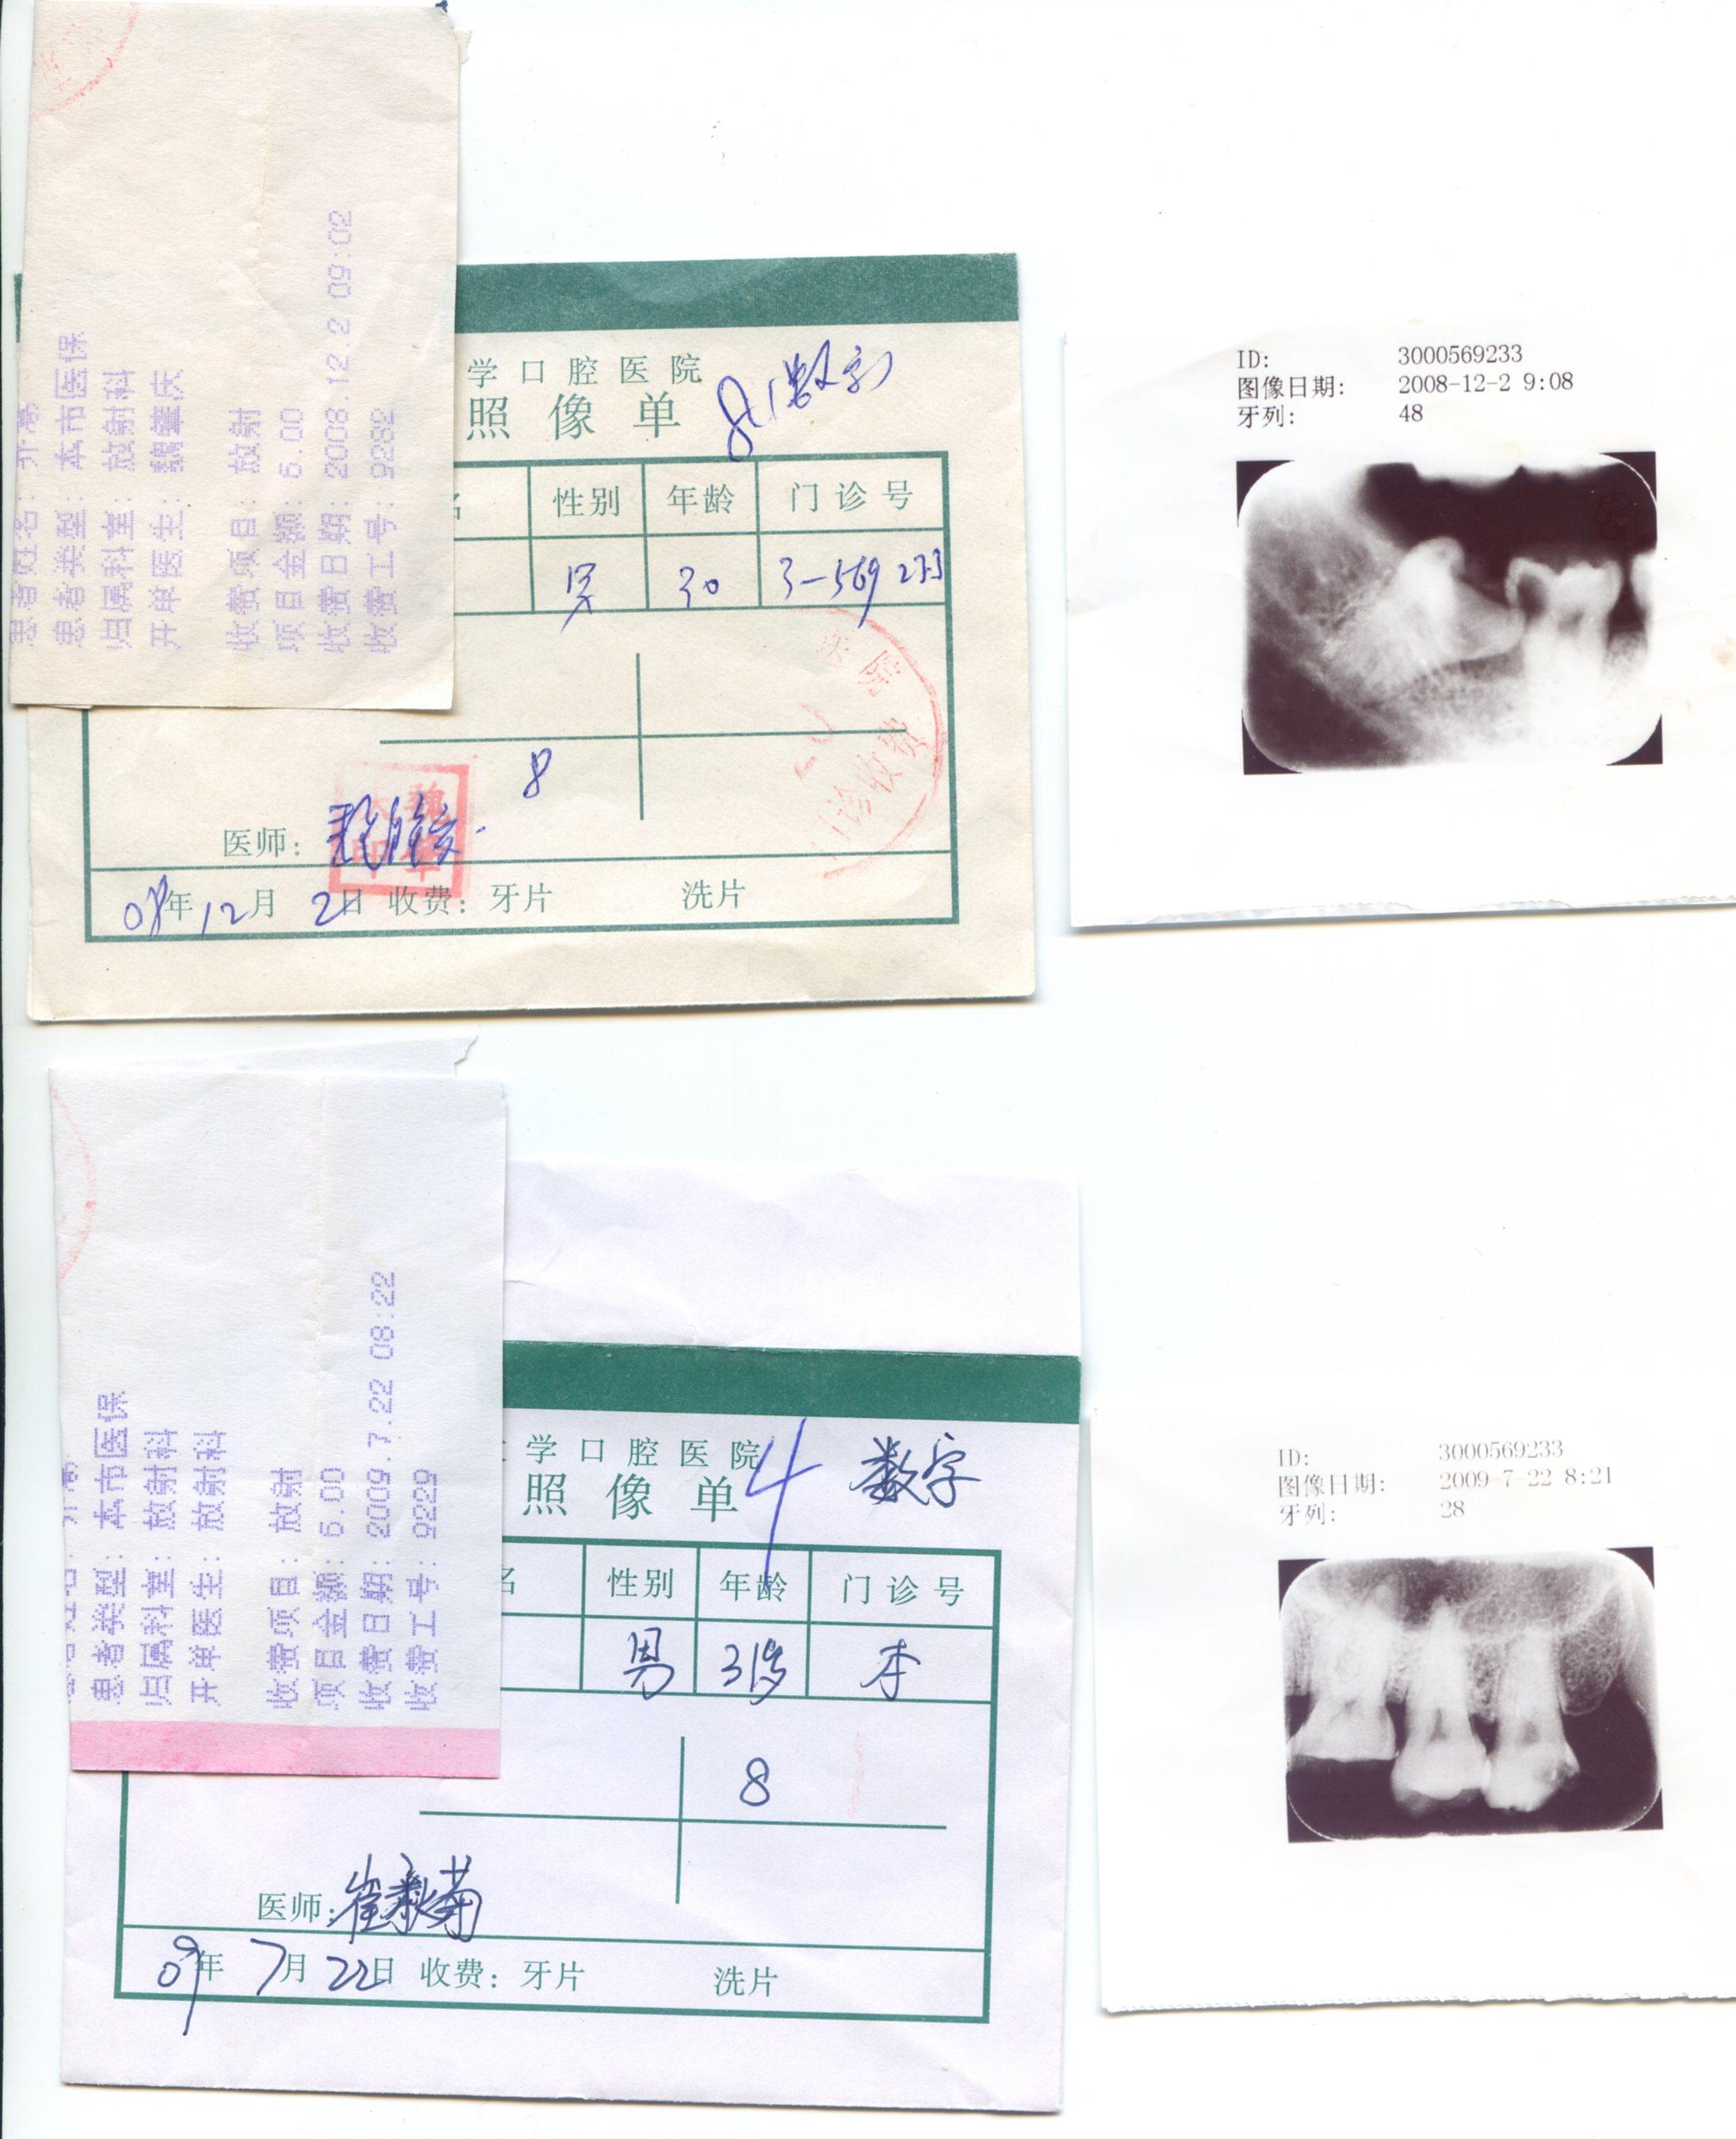 患者类型: 本市医保
归属科室: 放射科
开单医生: 魏肇庆
收费项目: 放射
项目金额: 6.00
收费日期: 2008.12.2 09:02
收费工号: 9282
学口腔医院
照像单
数字
性别 年龄 门诊号
男 30 3-569233
医院
门诊收费
8
医师:
08年12月2日 收费: 牙片 洗片
ID: 3000569233
图像日期: 2008-12-2 9:08
牙列: 48
患者类型: 本市医保
归属科室: 放射科
开单医生: 放射科
收费项目: 放射
项目金额: 6.00
收费日期: 2009.7.22 08:22
收费工号: 9229
学口腔医院
照像单 4 数字
名 性别 年龄 门诊号
男 31岁 本
8
医师: 崔秋菊
09年7月22日 收费: 牙片 洗片
ID: 3000569233
图像日期: 2009-7-22 8:21
牙列: 28